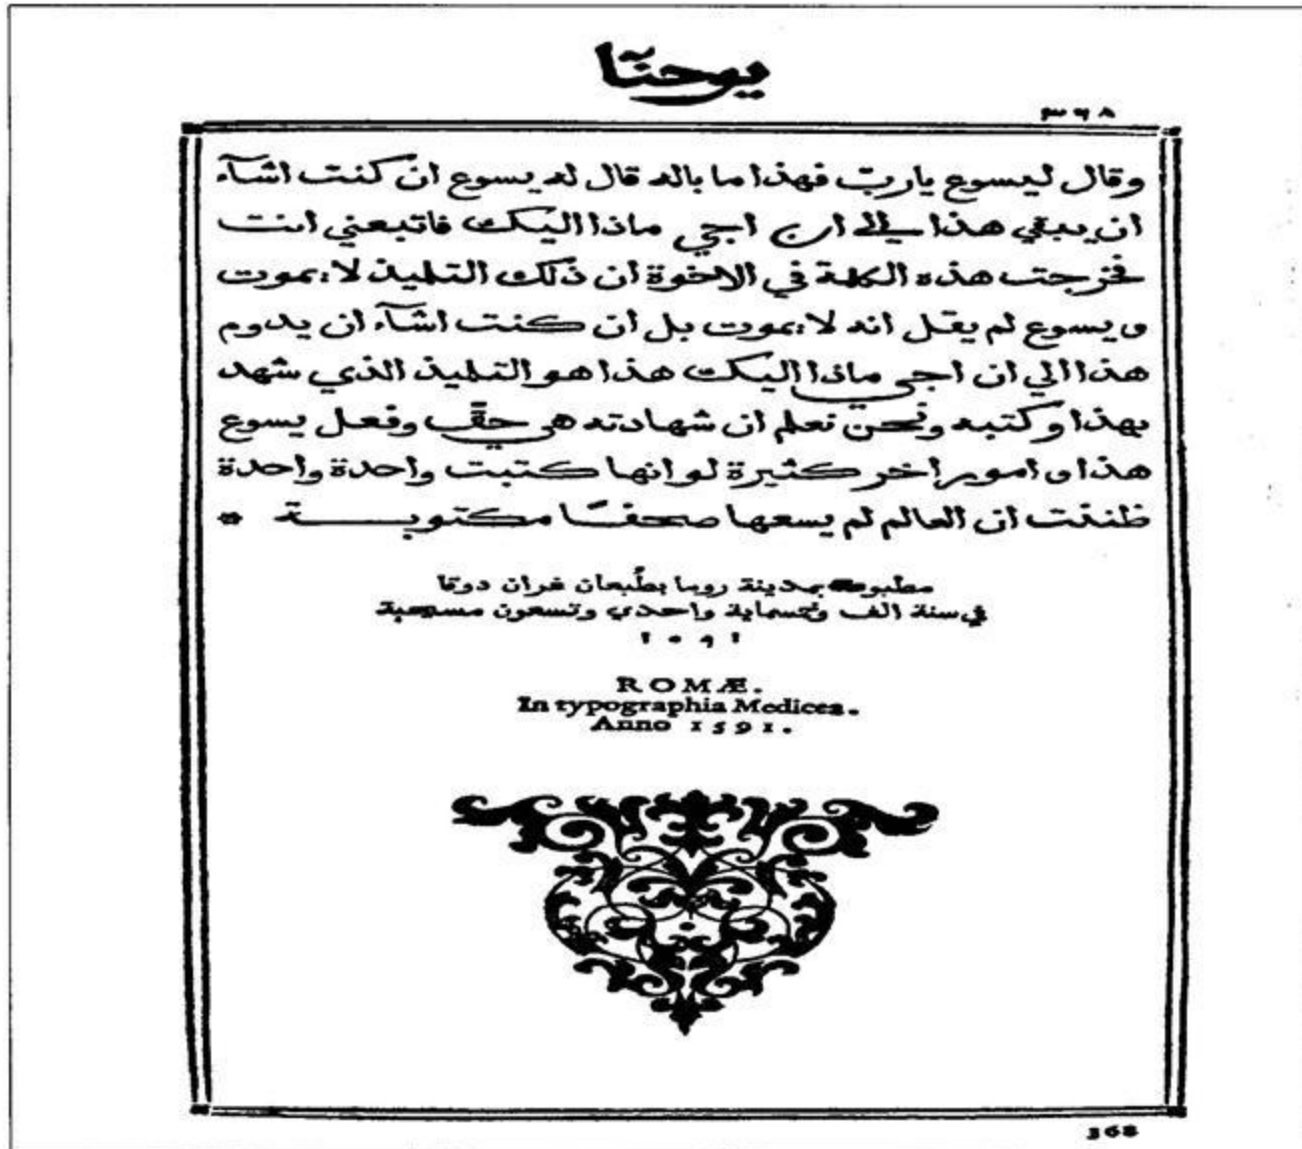 يوحنّا
٣٦٨
وقال ليسوع يا ربّ فهذا ما باله قال له يسوع ان كنت اشآء
ان يبقي هذا الي ان اجي ماذا اليك فاتبعني انت
فخرجت هذه الكلمة في الاخوة ان ذلك التلميذ لا يموت
ويسوع لم يقل انه لا يموت بل ان كنت اشآء ان يدوم
هذا الي ان اجي ماذا اليك هذا هو التلميذ الذي شهد
بهذا وكتبه ونحن نعلم ان شهادته هي حقّ وفعل يسوع
هذا وامور اخر كثيرة لو انها كتبت واحدة واحدة
ظننت ان العالم لم يسعها صحفًا مكتوبة *
مطبوعة بمدينة روما بطُبعان غران دوقا
في سنة الف وخمسماية واحدي وتسعون مسيحية
١٥٩١
ROMÆ.
In typographia Medicea.
Anno 1591.
368